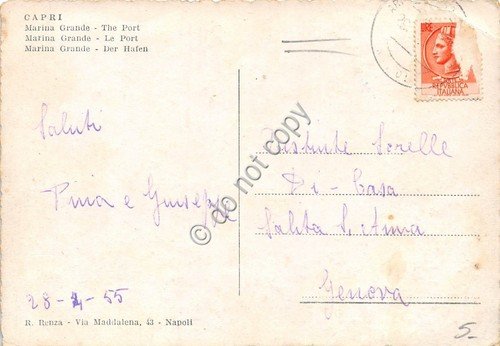 CAPRI
Marina Grande - The Port
Marina Grande - Le Port
Marina Grande - Der Hafen
LIRE
REPVBBLICA
ITALIANA
Saluti
Pina e Giuseppe
28-4-55
Distinte Sorelle
Di-Casa
Salita S. Anna
Genova
R. Renza - Via Maddalena, 43 - Napoli
5-
do not copy